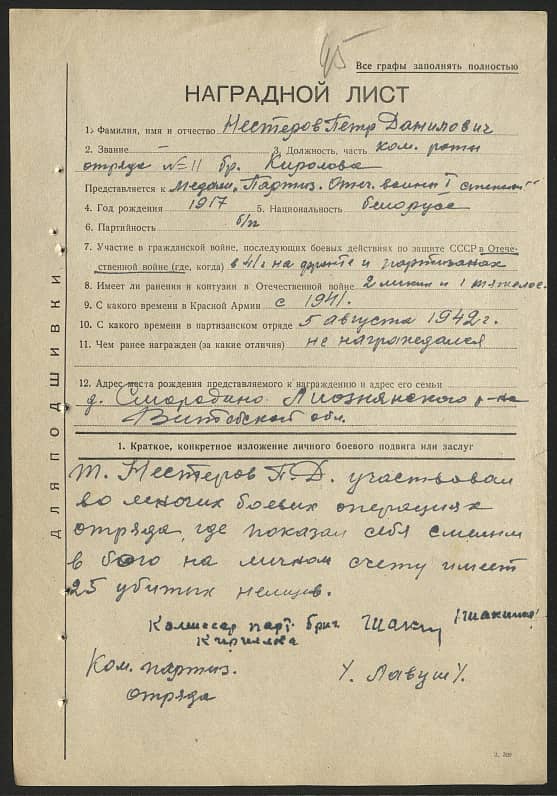 45
Все графы заполнять полностью
НАГРАДНОЙ ЛИСТ
1. Фамилия, имя и отчество Нестеров Петр Данилович
2. Звание 3. Должность, часть ком. роты
отряда №11 бр. Кирилова
Представляется к медали „Партиз. Отеч. войны I степени"
4. Год рождения 1917 5. Национальность белорус
6. Партийность б/п
7. Участие в гражданской войне, последующих боевых действиях по защите СССР в Отече-
ственной войне (где, когда) в 41 г на фронте и партизанах
8. Имеет ли ранения и контузии в Отечественной войне 2 легких и 1 тяжелое.
9. С какого времени в Красной Армии с 1941.
10. С какого времени в партизанском отряде 5 августа 1942 г.
11. Чем ранее награжден (за какие отличия) не награждался
12. Адрес места рождения представляемого к награждению и адрес его семьи
д. Смородино Лиознянского р-на
Витебской обл.
1. Краткое, конкретное изложение личного боевого подвига или заслуг
т. Нестеров П.Д. участвовал
во многих боевых операциях
отряда, где показал себя смелым
в бою на личном счету имеет
25 убитых немцев.
Комиссар парт. бриг.
Кирилова
Ком. партиз.
отряда
/. Лавуш /.
ДЛЯ ПОДШИВКИ